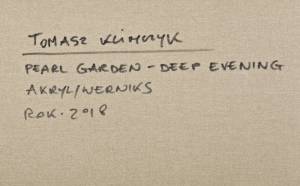 TOMASZ KLIMCZYK
PEARL GARDEN - DEEP EVENING
AKRYL/WERNIKS
ROK. 2018